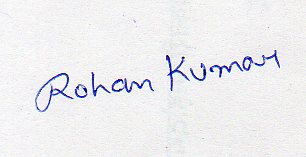 Rohan Kumar